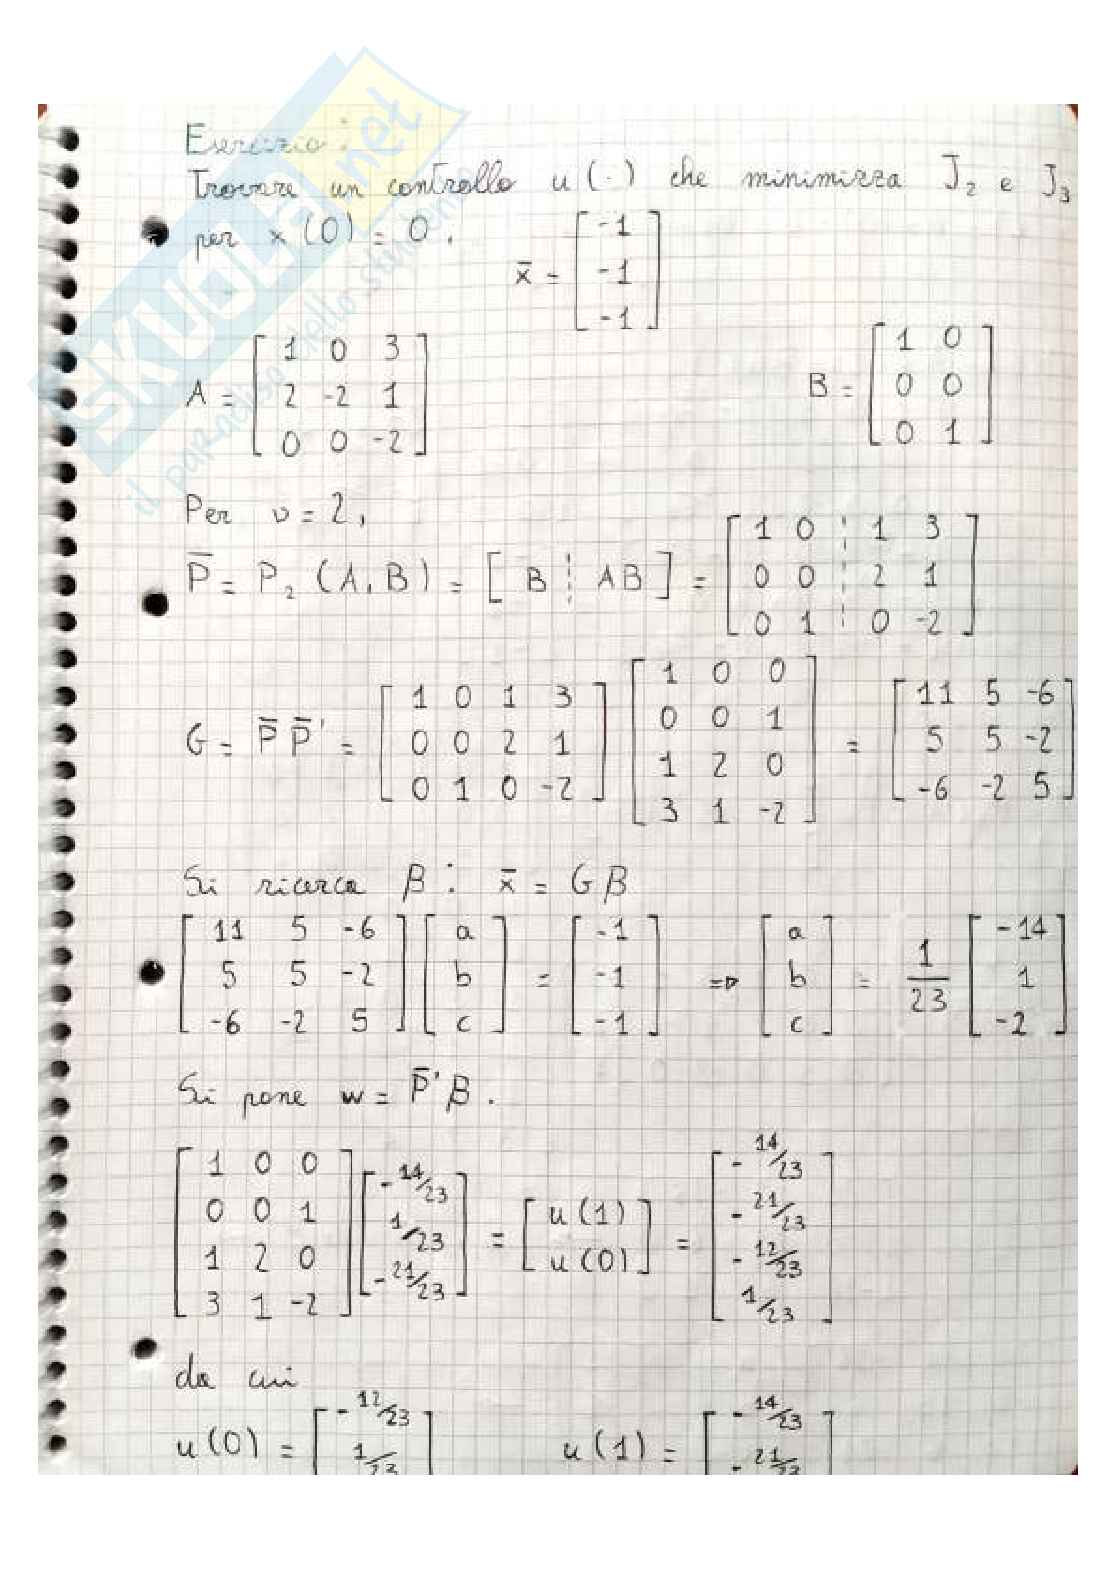 Esercizio:
Trovare un controllo u(·) che minimizza J₂ e J₃
per x(0) = 0.
x̄ = [-1; -1; -1]
A = [1 0 3; 2 -2 1; 0 0 -2]
B = [1 0; 0 0; 0 1]
Per ν = 2,
P̄ = P₂ (A, B) = [B ⋮ AB] = [1 0 ⋮ 1 3; 0 0 ⋮ 2 1; 0 1 ⋮ 0 -2]
G = P̄ P̄' = [1 0 1 3; 0 0 2 1; 0 1 0 -2] [1 0 0; 0 0 1; 1 2 0; 3 1 -2] = [11 5 -6; 5 5 -2; -6 -2 5]
Si ricerca β: x̄ = Gβ
[11 5 -6; 5 5 -2; -6 -2 5] [a; b; c] = [-1; -1; -1] ⇒ [a; b; c] = 1/23 [-14; 1; -2]
Si pone w = P̄'β.
[1 0 0; 0 0 1; 1 2 0; 3 1 -2] [-14/23; 1/23; -21/23] = [u(1); u(0)] = [-14/23; -21/23; -12/23; 1/23]
da cui
u(0) = [-12/23; 1/23] u(1) = [-14/23; -21/23]
SKUOLA.net
il paradiso dello studente